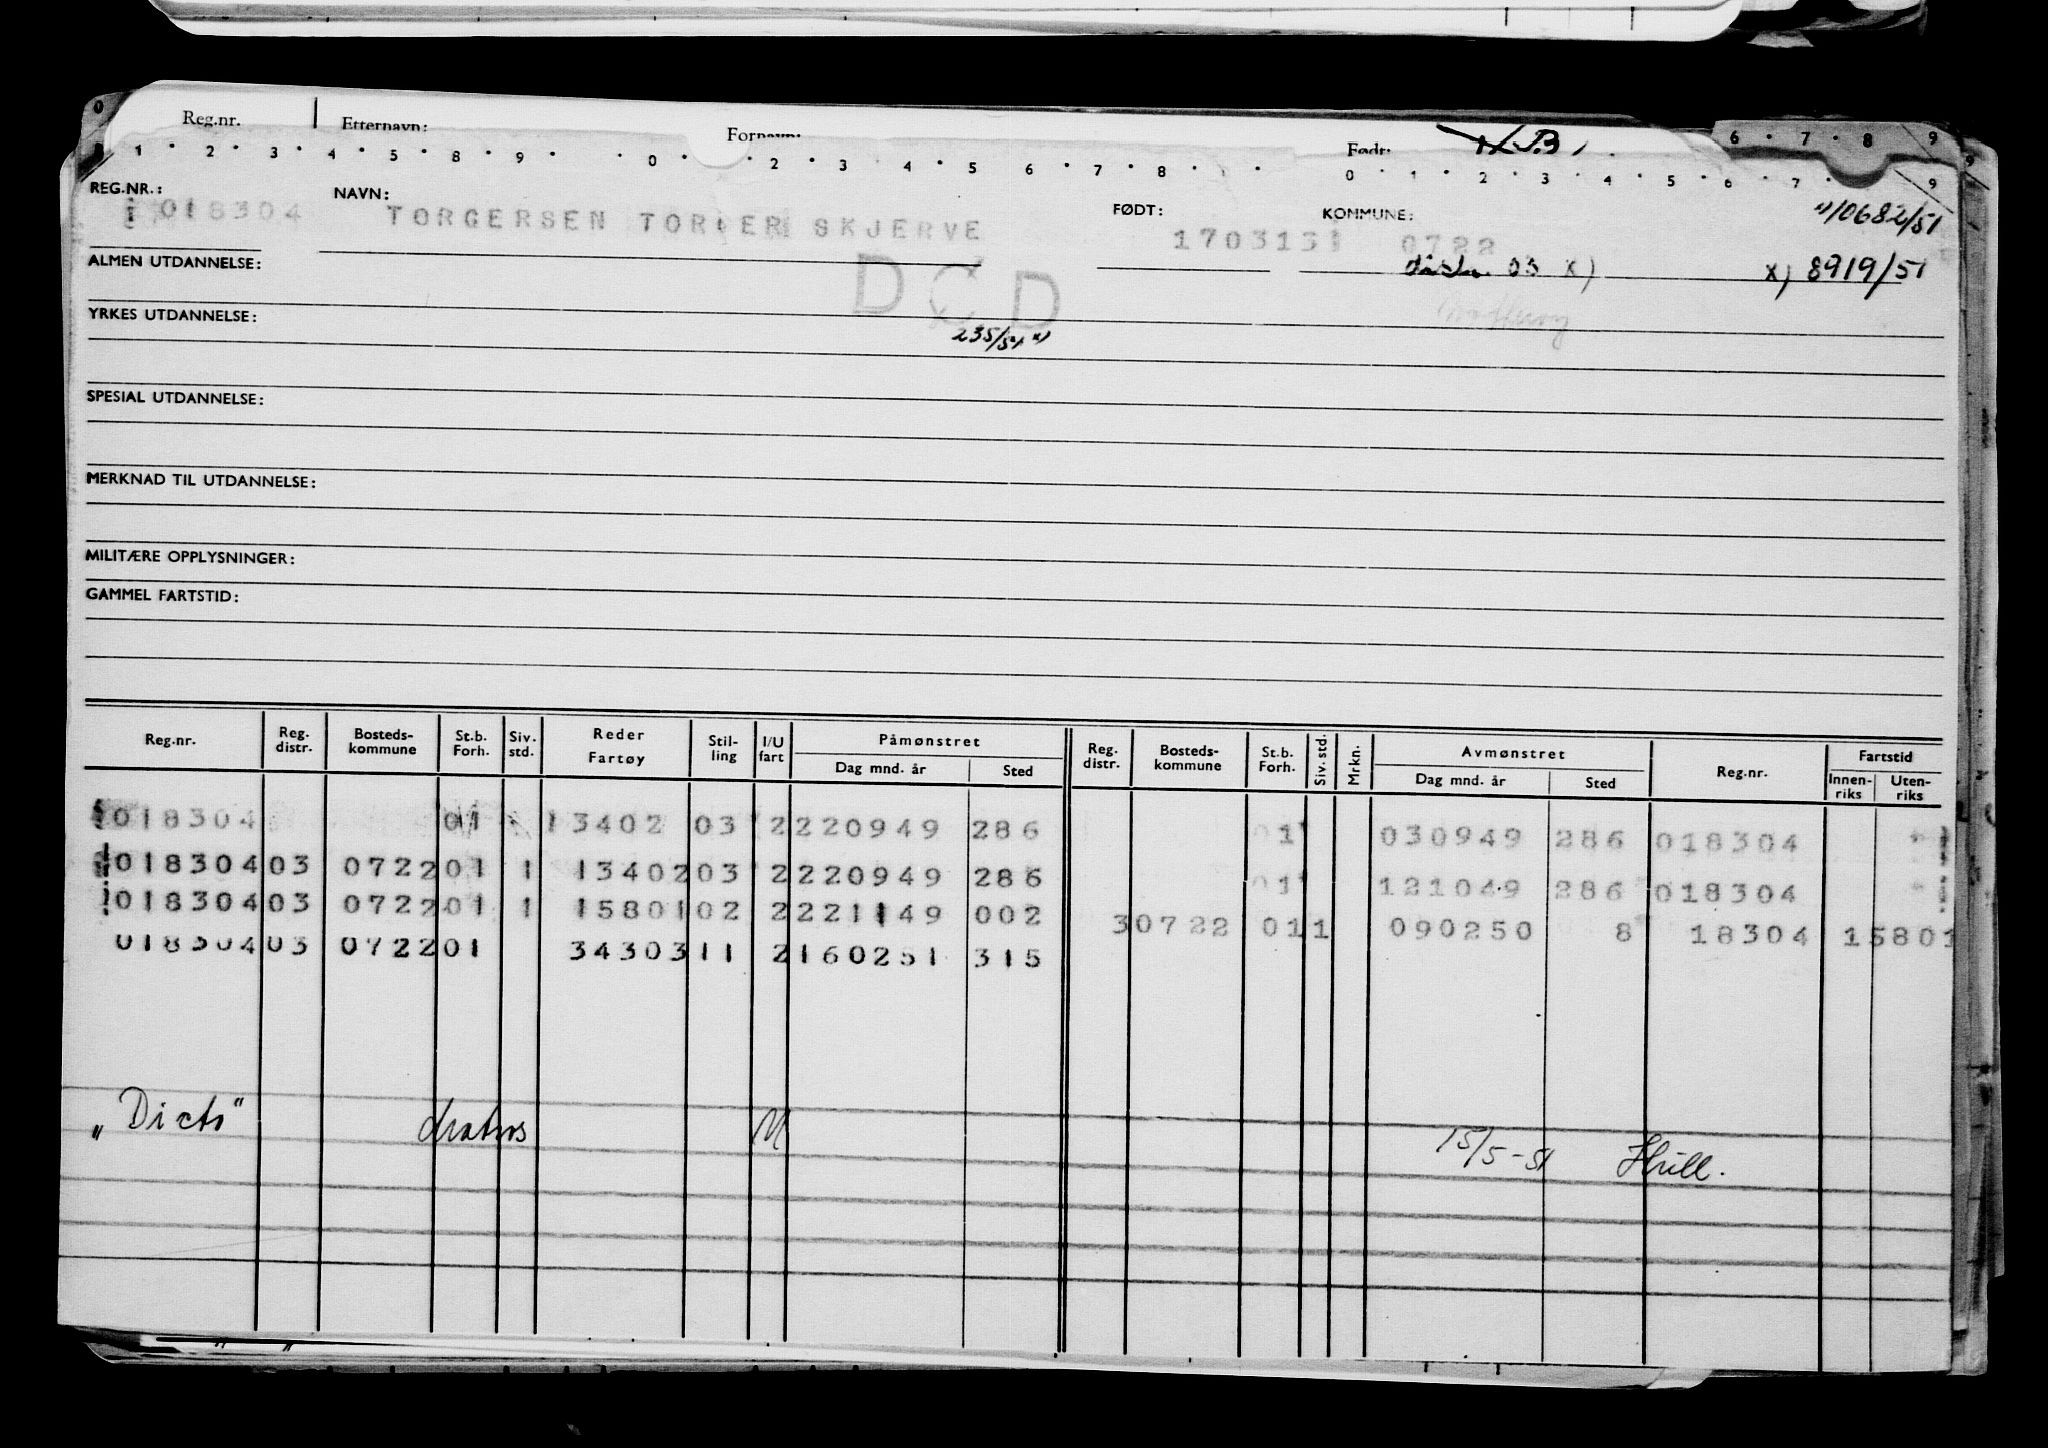 Reg.nr. Etternavn: Fornavn: Født: N.B.
1 2 3 4 5 8 9 0 2 3 4 5 6 7 8 0 1 2 3 4 5 6 7 9
REG.NR.: NAVN: FØDT: KOMMUNE:
018304 TORGERSEN SKJERVE 170313 0722 10682/51
ALMEN UTDANNELSE: 03 x) x) 8919/51
DØD
YRKES UTDANNELSE:
235/54
SPESIAL UTDANNELSE:
MERKNAD TIL UTDANNELSE:
MILITÆRE OPPLYSNINGER:
GAMMEL FARTSTID:
Reg.nr. Reg. distr. Bosteds- kommune St.b. Forh. Siv. std. Reder Fartøy Stil- ling I/U fart Påmønstret Dag mnd. år Sted Reg. distr. Bosteds- kommune St.b. Forh. Siv. std. Mrkn. Avmønstret Dag mnd. år Sted Reg.nr. Fartstid Innen- riks Uten- riks
018304 01 13402 03 2 220949 286 01 030949 286 018304
018304 03 0722 01 1 13402 03 2 220949 286 01 121049 286 018304
018304 03 0722 01 1 15801 02 2 221149 002 3 0722 01 1 090250 8 18304 15801
018304 03 0722 01 34303 11 2 160251 315
"Dicto" M 15/5-51 Hull.